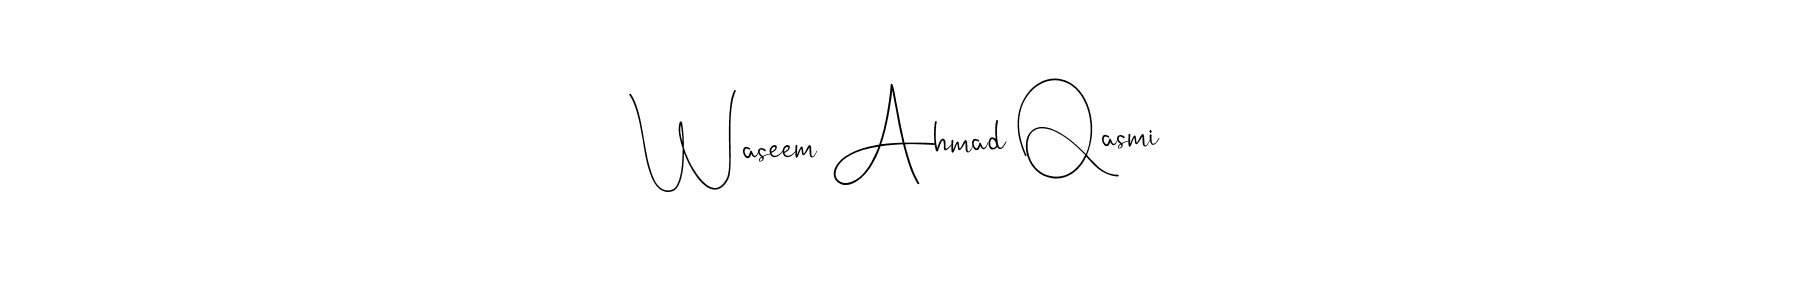 Waseem Ahmad Qasmi